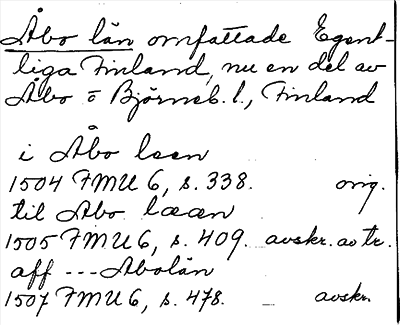 Åbo län omfattade Egent-
liga Finland, nu en del av
Åbo o Björneb. l., Finland
i Åbo leen
1504 FMU 6, s. 338. orig.
til Åbo lææn
1505 FMU 6, s. 409. avskr. av tr.
aff --- Abolän
1507 FMU 6, s. 478. avskr.